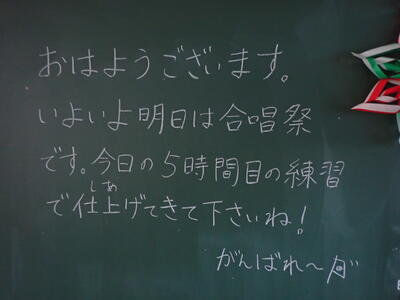 おはようございます。
いよいよ明日は合唱祭
です。今日の5時間目の練習
で仕上げてきて下さいね！
しあ
がんばれ〜